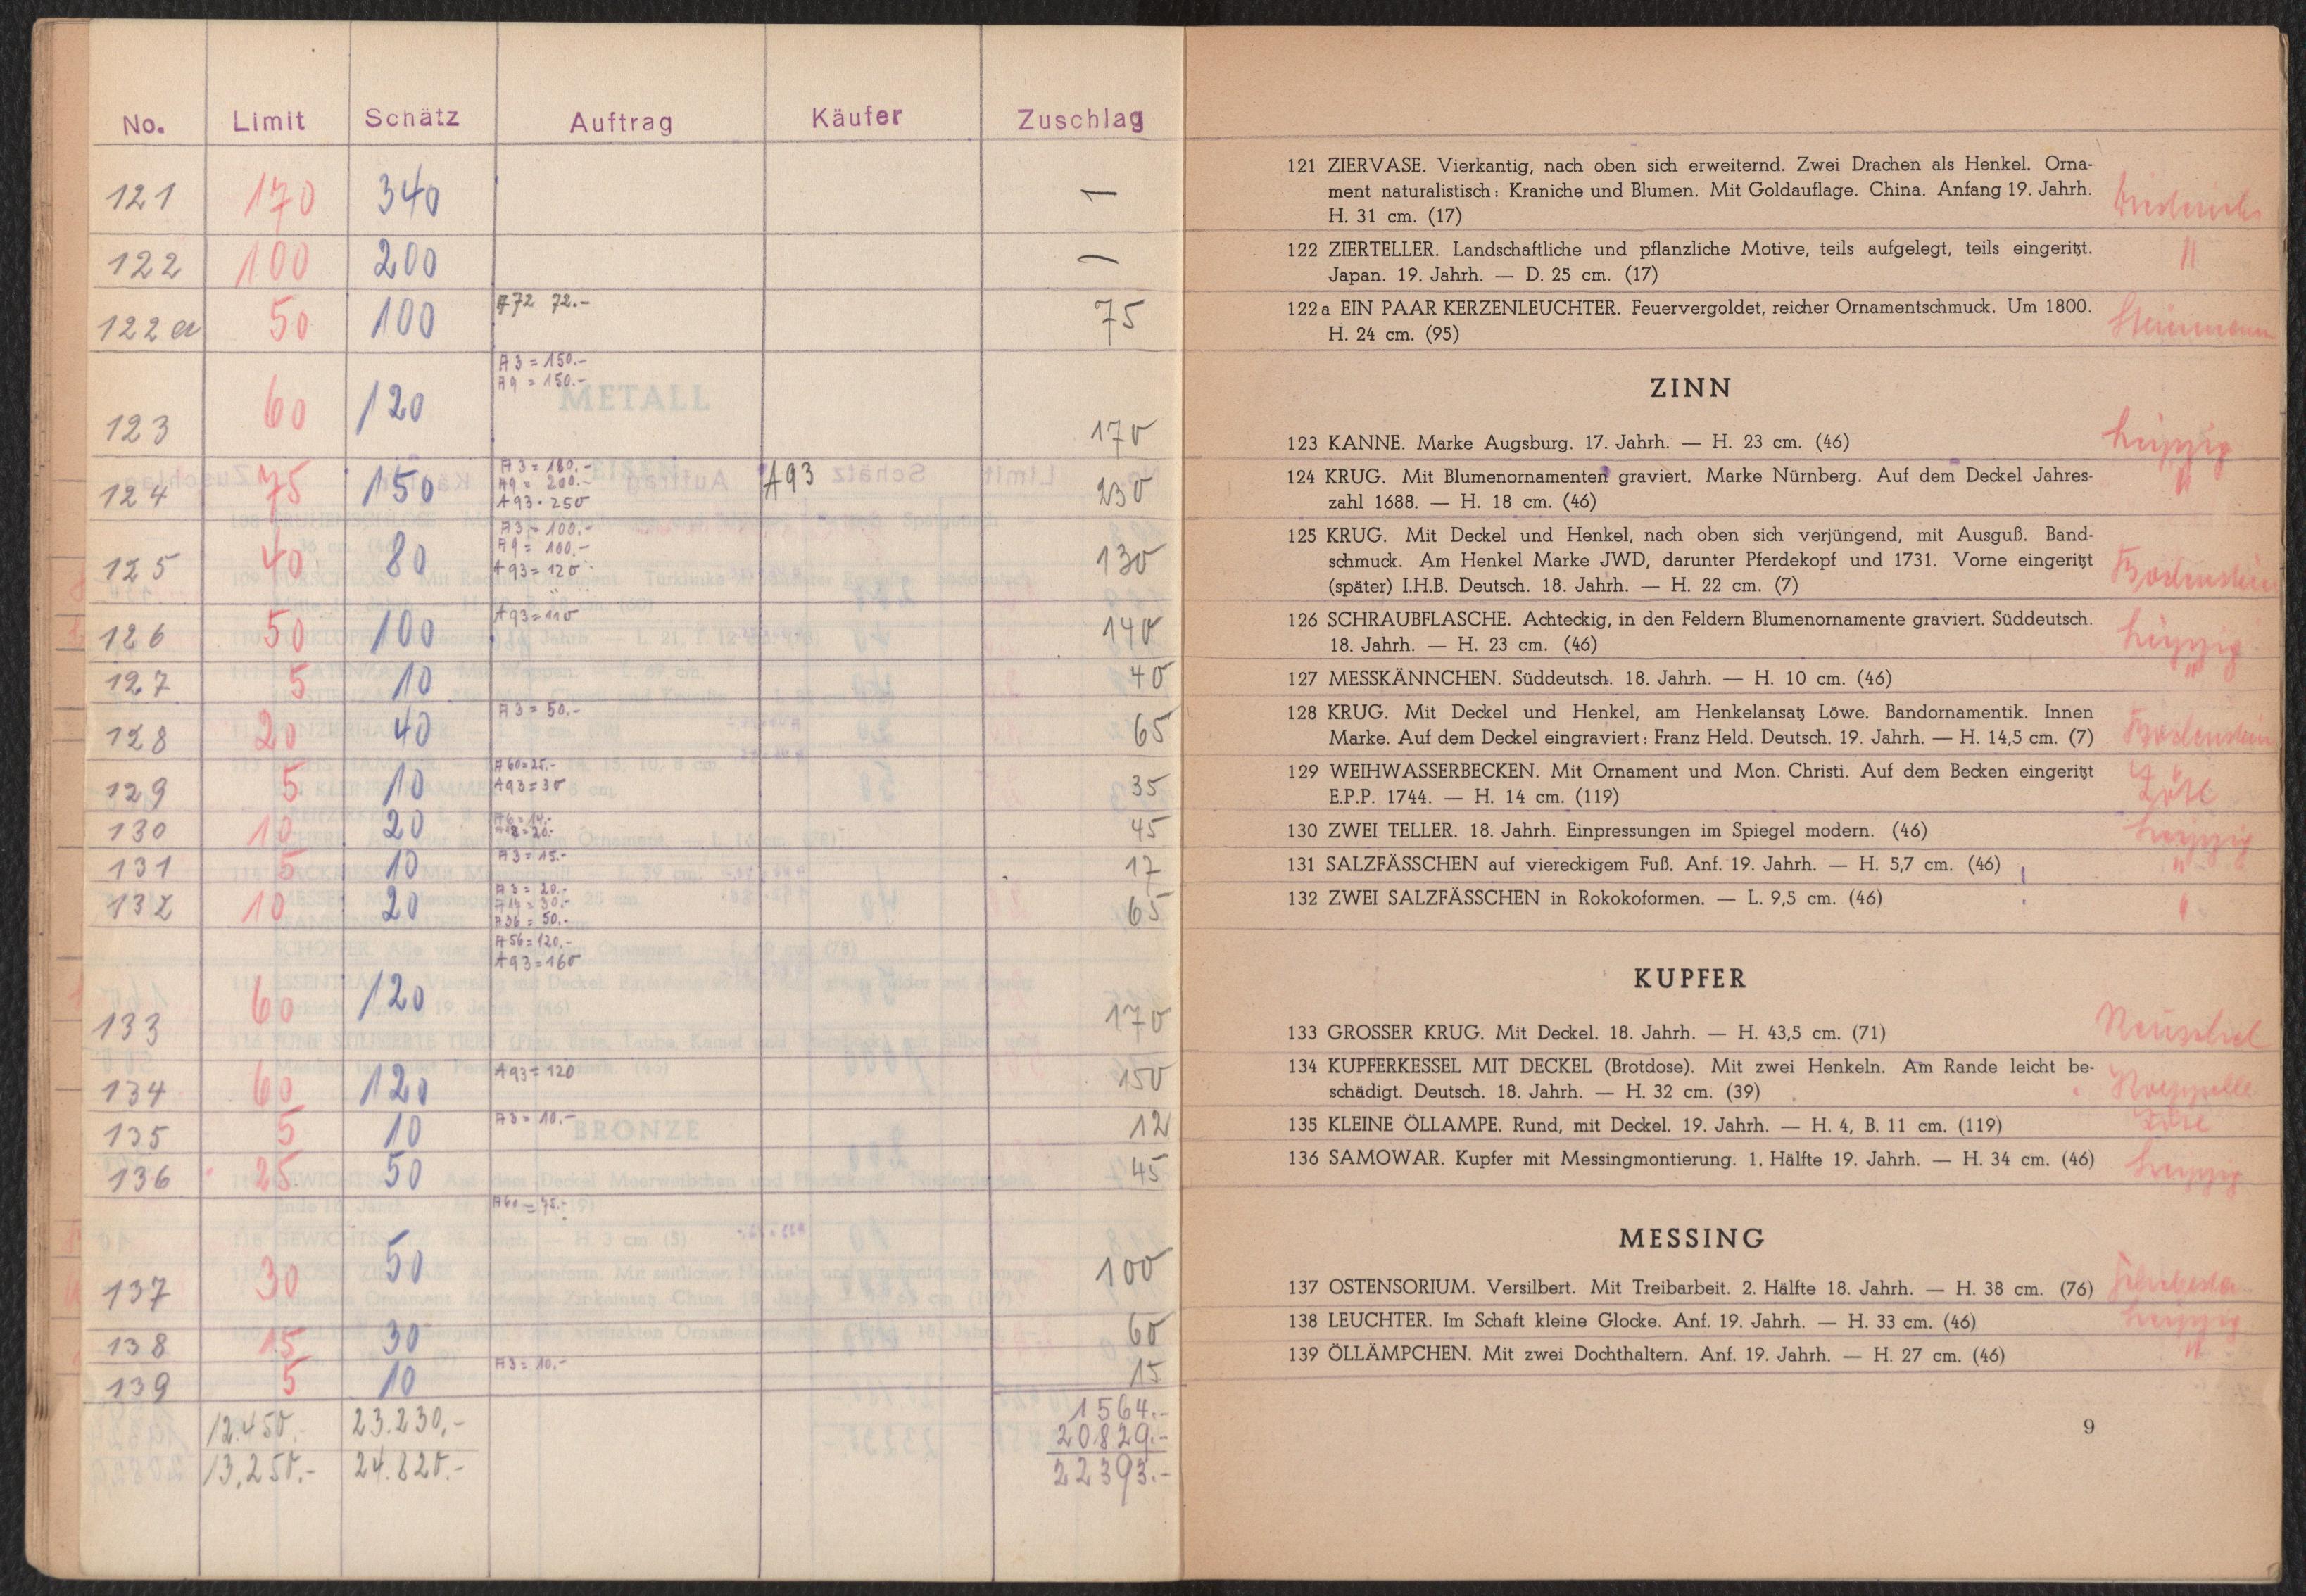 No. Limit Schätz Auftrag Käufer Zuschlag
121 170 340 —
122 100 200 —
122a 50 100 A72 72.- 75
A3 = 150.-
A9 = 150.-
123 60 120 170
A3 = 180.-
A9 = 200.-
124 75 150 A93 = 250 A93 230
A3 = 100.-
A9 = 100.-
125 40 80 A93 = 120 130
126 50 100 A93 = 110 140
127 5 10 40
128 20 40 A3 = 50.- 65
A60 = 25.-
129 5 10 A93 = 30 35
A6 = 14.-
130 10 20 A18 = 20.- 45
131 5 10 A3 = 15.- 17
A3 = 20.-
132 10 20 A14 = 30.- 65
A36 = 50.-
A56 = 120.-
A93 = 160
133 60 120 170
134 60 120 A93 = 120 150
135 5 10 A3 = 10.- 12
136 25 50 45
A60 = 75.-
137 30 50 100
138 15 30 60
139 5 10 A3 = 10.- 15
12.450.- 23.230,- 1564.-
20829.-
13.250.- 24.820.- 22393.-
121 ZIERVASE. Vierkantig, nach oben sich erweiternd. Zwei Drachen als Henkel. Orna-
ment naturalistisch: Kraniche und Blumen. Mit Goldauflage. China. Anfang 19. Jahrh.
H. 31 cm. (17)
122 ZIERTELLER. Landschaftliche und pflanzliche Motive, teils aufgelegt, teils eingeritzt. "
Japan. 19. Jahrh. — D. 25 cm. (17)
122a EIN PAAR KERZENLEUCHTER. Feuervergoldet, reicher Ornamentschmuck. Um 1800. Steinmann
H. 24 cm. (95)
ZINN
123 KANNE. Marke Augsburg. 17. Jahrh. — H. 23 cm. (46) Leipzig
124 KRUG. Mit Blumenornamenten graviert. Marke Nürnberg. Auf dem Deckel Jahres- "
zahl 1688. — H. 18 cm. (46)
125 KRUG. Mit Deckel und Henkel, nach oben sich verjüngend, mit Ausguß. Band-
schmuck. Am Henkel Marke JWD, darunter Pferdekopf und 1731. Vorne eingeritzt Bodenstein
(später) I.H.B. Deutsch. 18. Jahrh. — H. 22 cm. (7)
126 SCHRAUBFLASCHE. Achteckig, in den Feldern Blumenornamente graviert. Süddeutsch. Leipzig
18. Jahrh. — H. 23 cm. (46)
127 MESSKÄNNCHEN. Süddeutsch. 18. Jahrh. — H. 10 cm. (46) "
128 KRUG. Mit Deckel und Henkel, am Henkelansatz Löwe. Bandornamentik. Innen Bodenstein
Marke. Auf dem Deckel eingraviert: Franz Held. Deutsch. 19. Jahrh. — H. 14,5 cm. (7)
129 WEIHWASSERBECKEN. Mit Ornament und Mon. Christi. Auf dem Becken eingeritzt
E.P.P. 1744. — H. 14 cm. (119)
130 ZWEI TELLER. 18. Jahrh. Einpressungen im Spiegel modern. (46) Leipzig
131 SALZFÄSSCHEN auf viereckigem Fuß. Anf. 19. Jahrh. — H. 5,7 cm. (46) "
132 ZWEI SALZFÄSSCHEN in Rokokoformen. — L. 9,5 cm. (46)
KUPFER
133 GROSSER KRUG. Mit Deckel. 18. Jahrh. — H. 43,5 cm. (71)
134 KUPFERKESSEL MIT DECKEL (Brotdose). Mit zwei Henkeln. Am Rande leicht be-
schädigt. Deutsch. 18. Jahrh. — H. 32 cm. (39)
135 KLEINE ÖLLAMPE. Rund, mit Deckel. 19. Jahrh. — H. 4, B. 11 cm. (119)
136 SAMOWAR. Kupfer mit Messingmontierung. 1. Hälfte 19. Jahrh. — H. 34 cm. (46) Leipzig
MESSING
137 OSTENSORIUM. Versilbert. Mit Treibarbeit. 2. Hälfte 18. Jahrh. — H. 38 cm. (76)
138 LEUCHTER. Im Schaft kleine Glocke. Anf. 19. Jahrh. — H. 33 cm. (46) Leipzig
139 ÖLLÄMPCHEN. Mit zwei Dochthaltern. Anf. 19. Jahrh. — H. 27 cm. (46) "
9